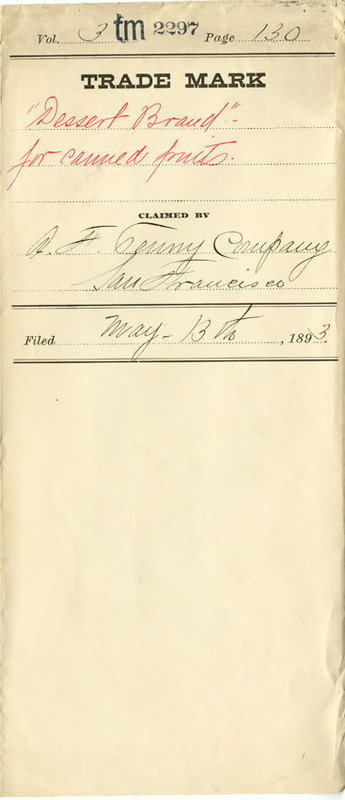 Vol. 3 tm 2297 Page 130
TRADE MARK
"Dessert Brand"-
for canned fruits.
CLAIMED BY
A F Tenny Company
San Francisco
Filed May - 13th, 1893.